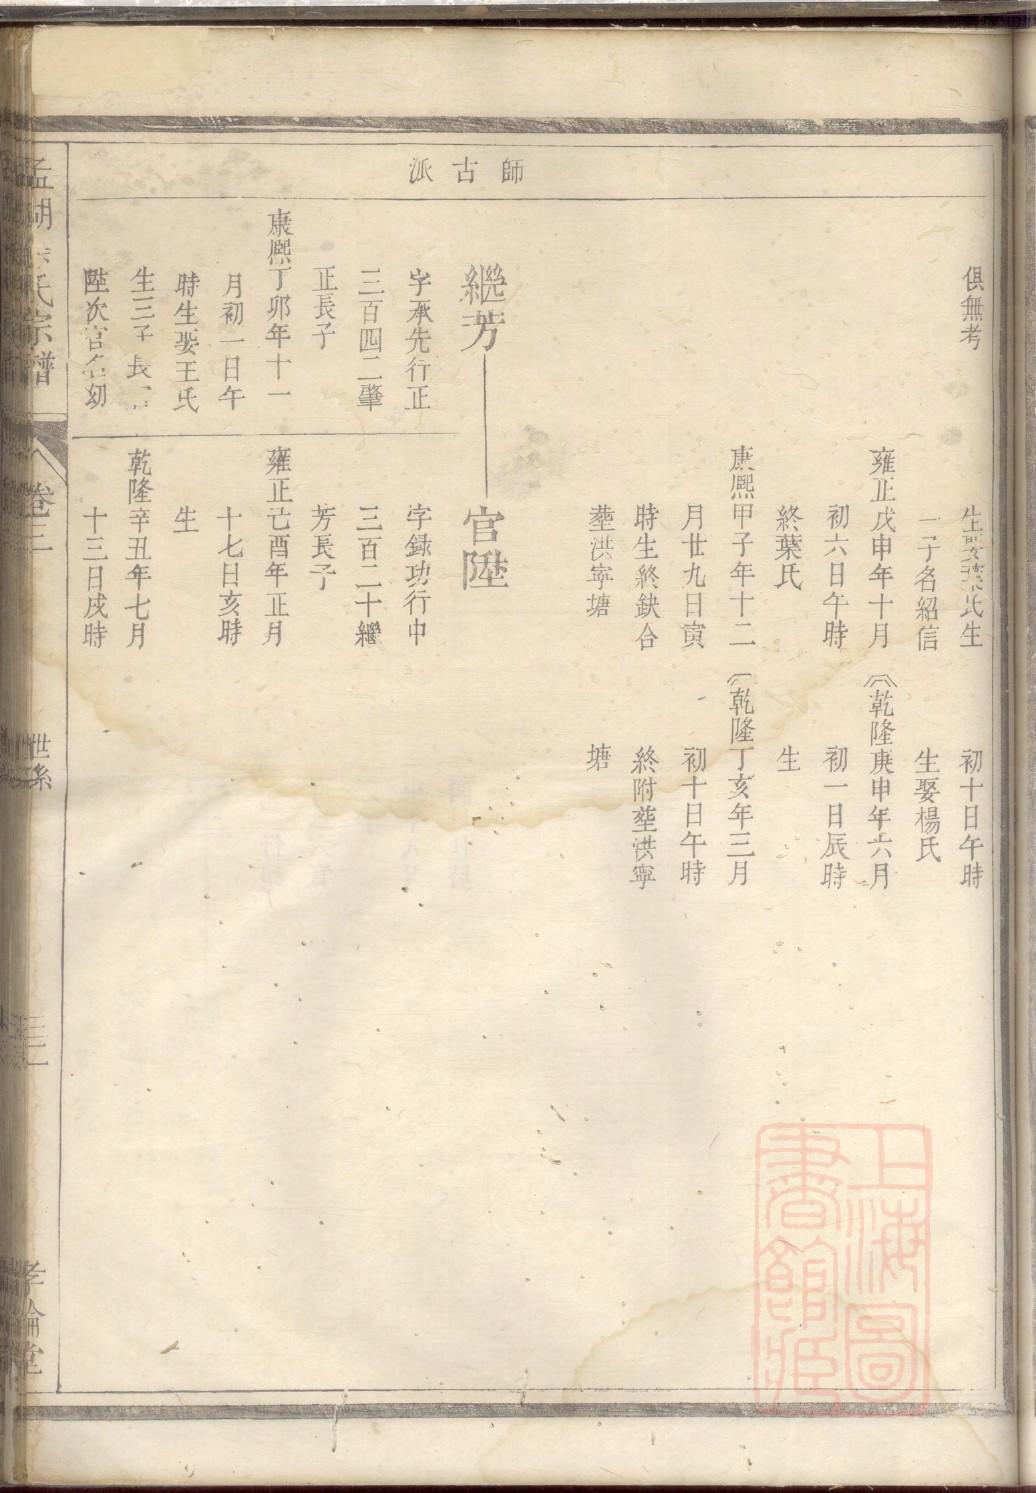 師古派
俱無考
氏生
二子名紹信
雍正戊申年十月
初六日午時
終葉氏
康熙甲子年十二
月廿九日寅
時生終缺合
塟洪寧塘
初十日午時
生娶楊氏
乾隆庚申年六月
初一日辰時
生
乾隆丁亥年三月
初十日午時
終附塟洪寧
塘
繼芳
官陞
字承先行正
三百四二肇
正長子
康熙丁卯年十一
月初一日午
時生娶王氏
生三子長官
陞次官名幼
字録功行中
三百二十繼
芳長子
雍正己酉年正月
十七日亥時
生
乾隆辛丑年七月
十三日戌時
孟湖 氏宗譜
卷三
世系
三二
孝倫堂
上海圖書館藏